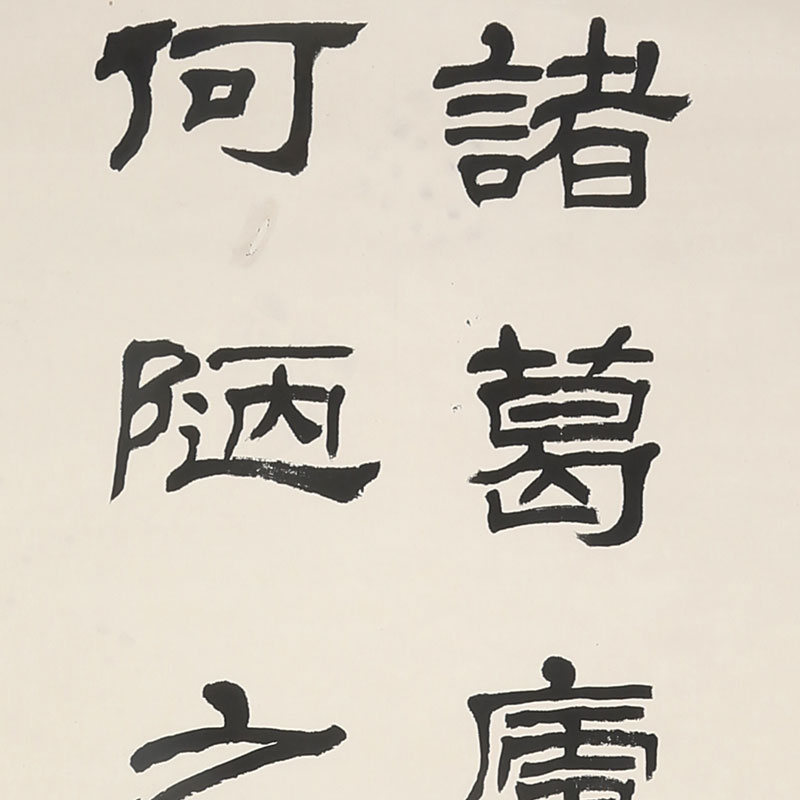 諸葛廬
何陋之